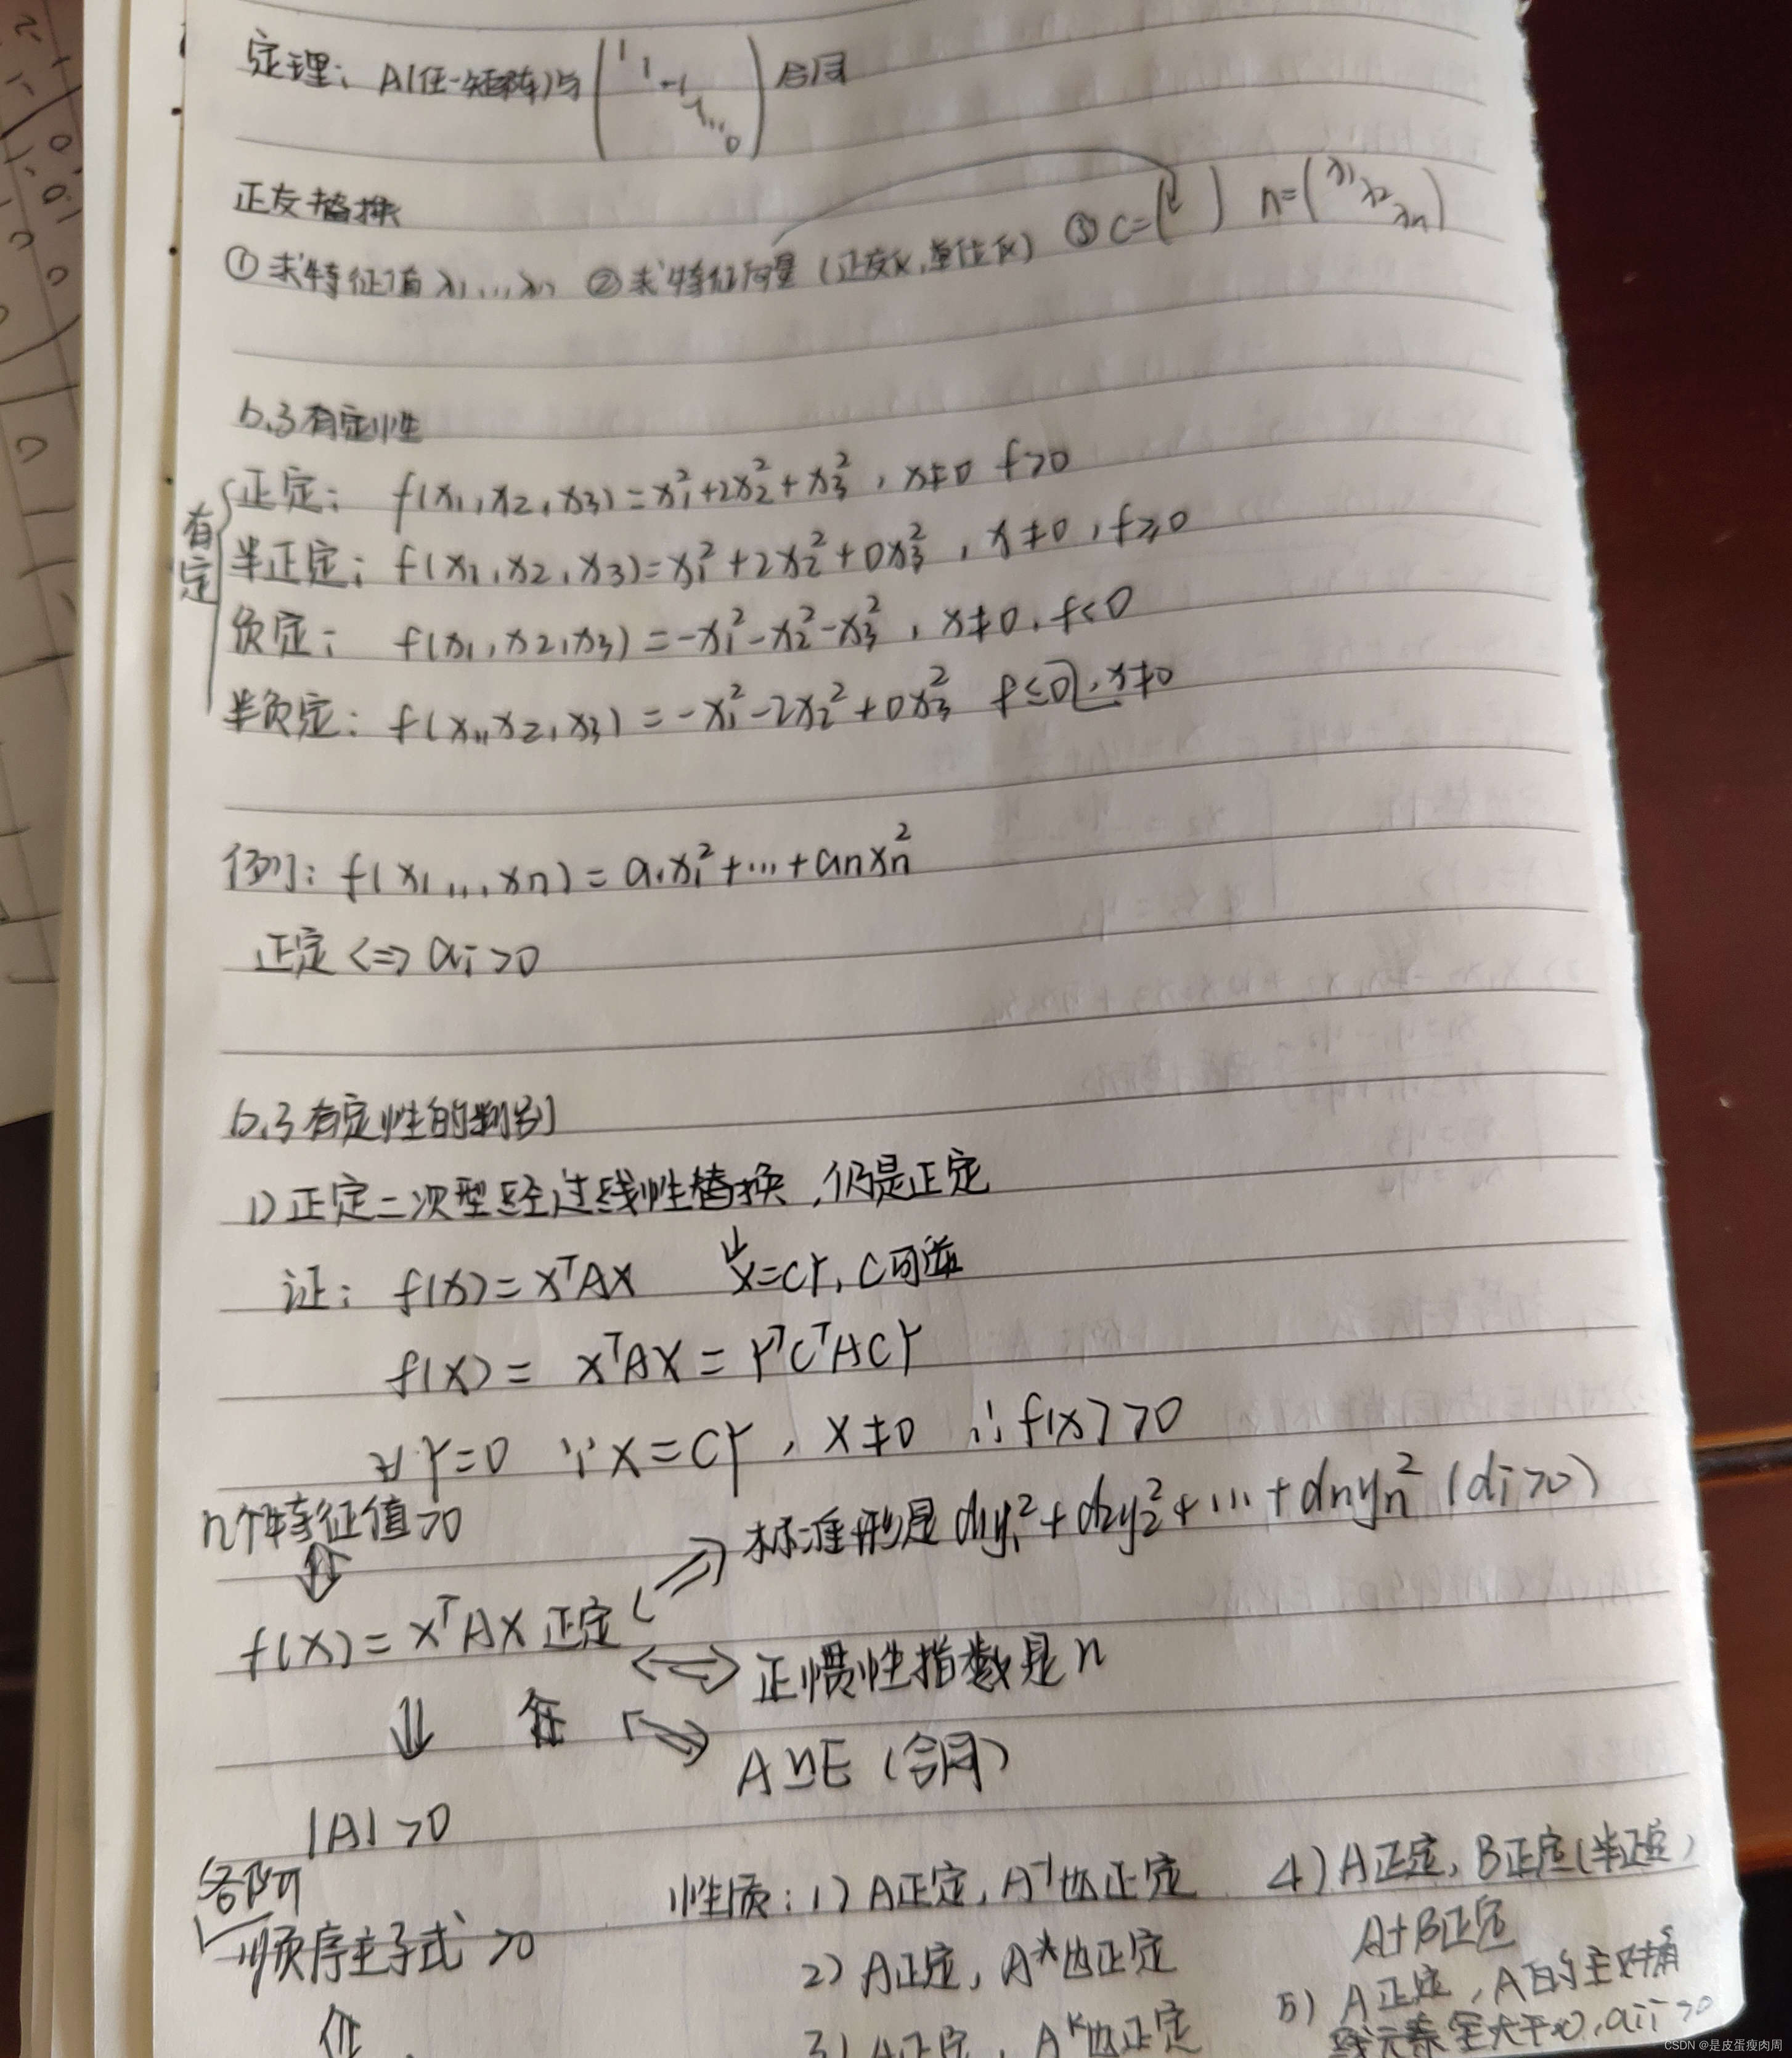 定理: A(任一矩阵)与(1 1 -1 -1 ... 0)合同
正交替换
①求特征值λ1,...,λn ②求特征向量(正交化,单位化) ③C=( ) Λ=(λ1 λ2 λn)
6.3有定性
有定
正定: f(x₁,x₂,x₃)=x₁²+2x₂²+x₃², x≠0 f>0
半正定: f(x₁,x₂,x₃)=x₁²+2x₂²+0x₃², x≠0, f≥0
负定: f(x₁,x₂,x₃)=-x₁²-x₂²-x₃², x≠0, f<0
半负定: f(x₁,x₂,x₃)=-x₁²-2x₂²+0x₃² f≤0, x≠0
例: f(x₁,..,xn)=a₁x₁²+...+anxn²
正定<=>ai>0
6.3有定性的判别
1)正定二次型经过线性替换,仍是正定
证: f(x)=xᵀAX x=CY, C可逆
f(X)= XᵀAX=YᵀCᵀACY
Y=0 ∵X=CY, X≠0 ∴f(x)>0
n个特征值>0
标准形是d₁y₁²+d₂y₂²+...+dnyn² (di>0)
f(X)=XᵀAX正定
正惯性指数是n
A≃E(合同)
|A|>0
各阶
顺序主子式>0
性质: 1) A正定, A⁻¹也正定
2) A正定, A*也正定
3) A正定, Aᵏ也正定
4) A正定, B正定(半正定)
A+B正定
5) A正定, A的主对角
线元素全大于0, aii>0
CSDN @是皮蛋瘦肉周